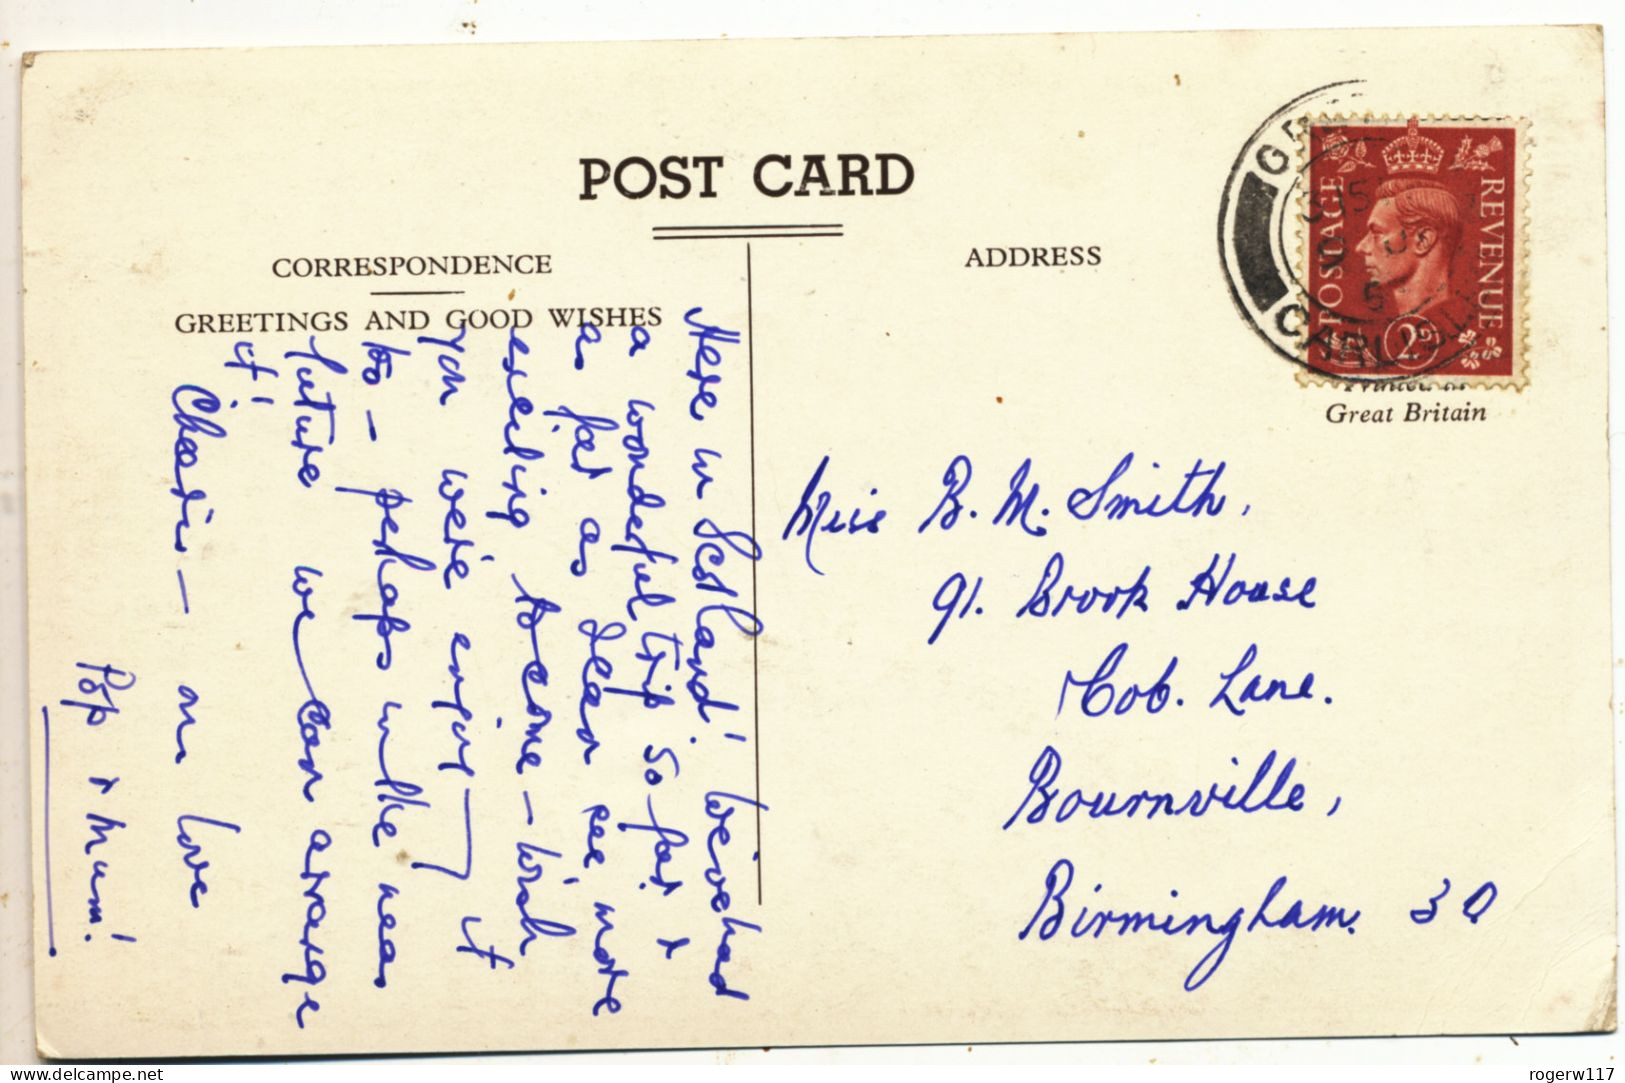 POST CARD
CORRESPONDENCE
GREETINGS AND GOOD WISHES
ADDRESS
POSTAGE
REVENUE
CARLISLE
Great Britain
Here in Scotland! We've had
a wonderful trip so far &
as far as I can see more
exciting to come – wish
you were enjoying it
too – perhaps in the near
future we can arrange
it!
Cheerio – on love
Pop & Mum!
Miss B. M. Smith,
91. Brook House
Cob. Lane.
Bournville,
Birmingham. 30
www.delcampe.net
rogerw117